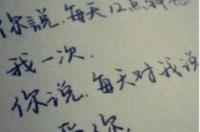 你說.每天12点
我一次.
你说.每天对我说
爱你.